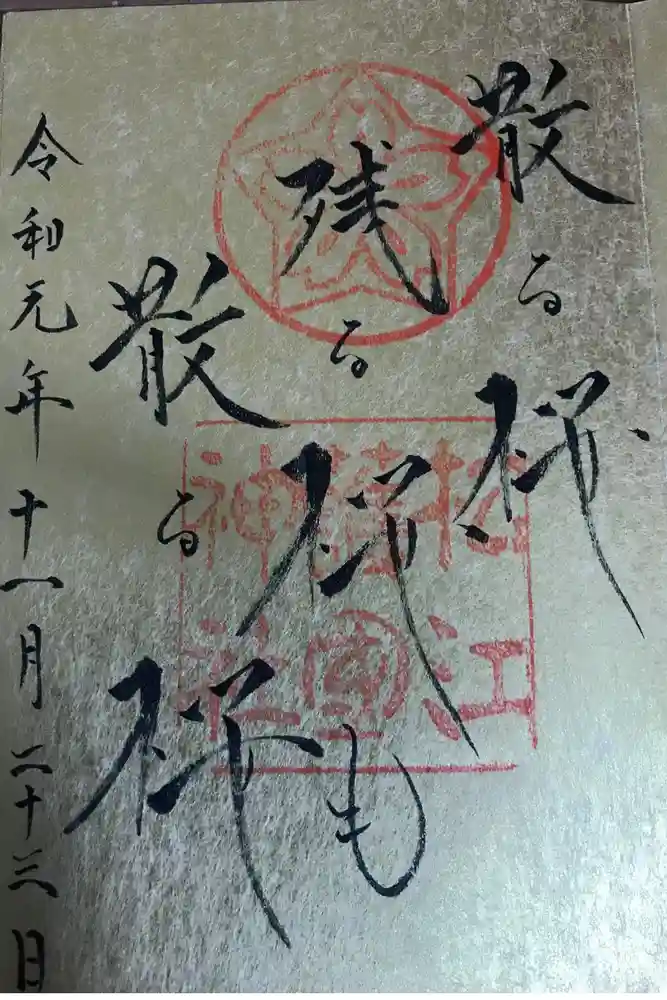 散る桜
残る桜も
散る桜
令和元年十一月二十三日
松江
護國
神社